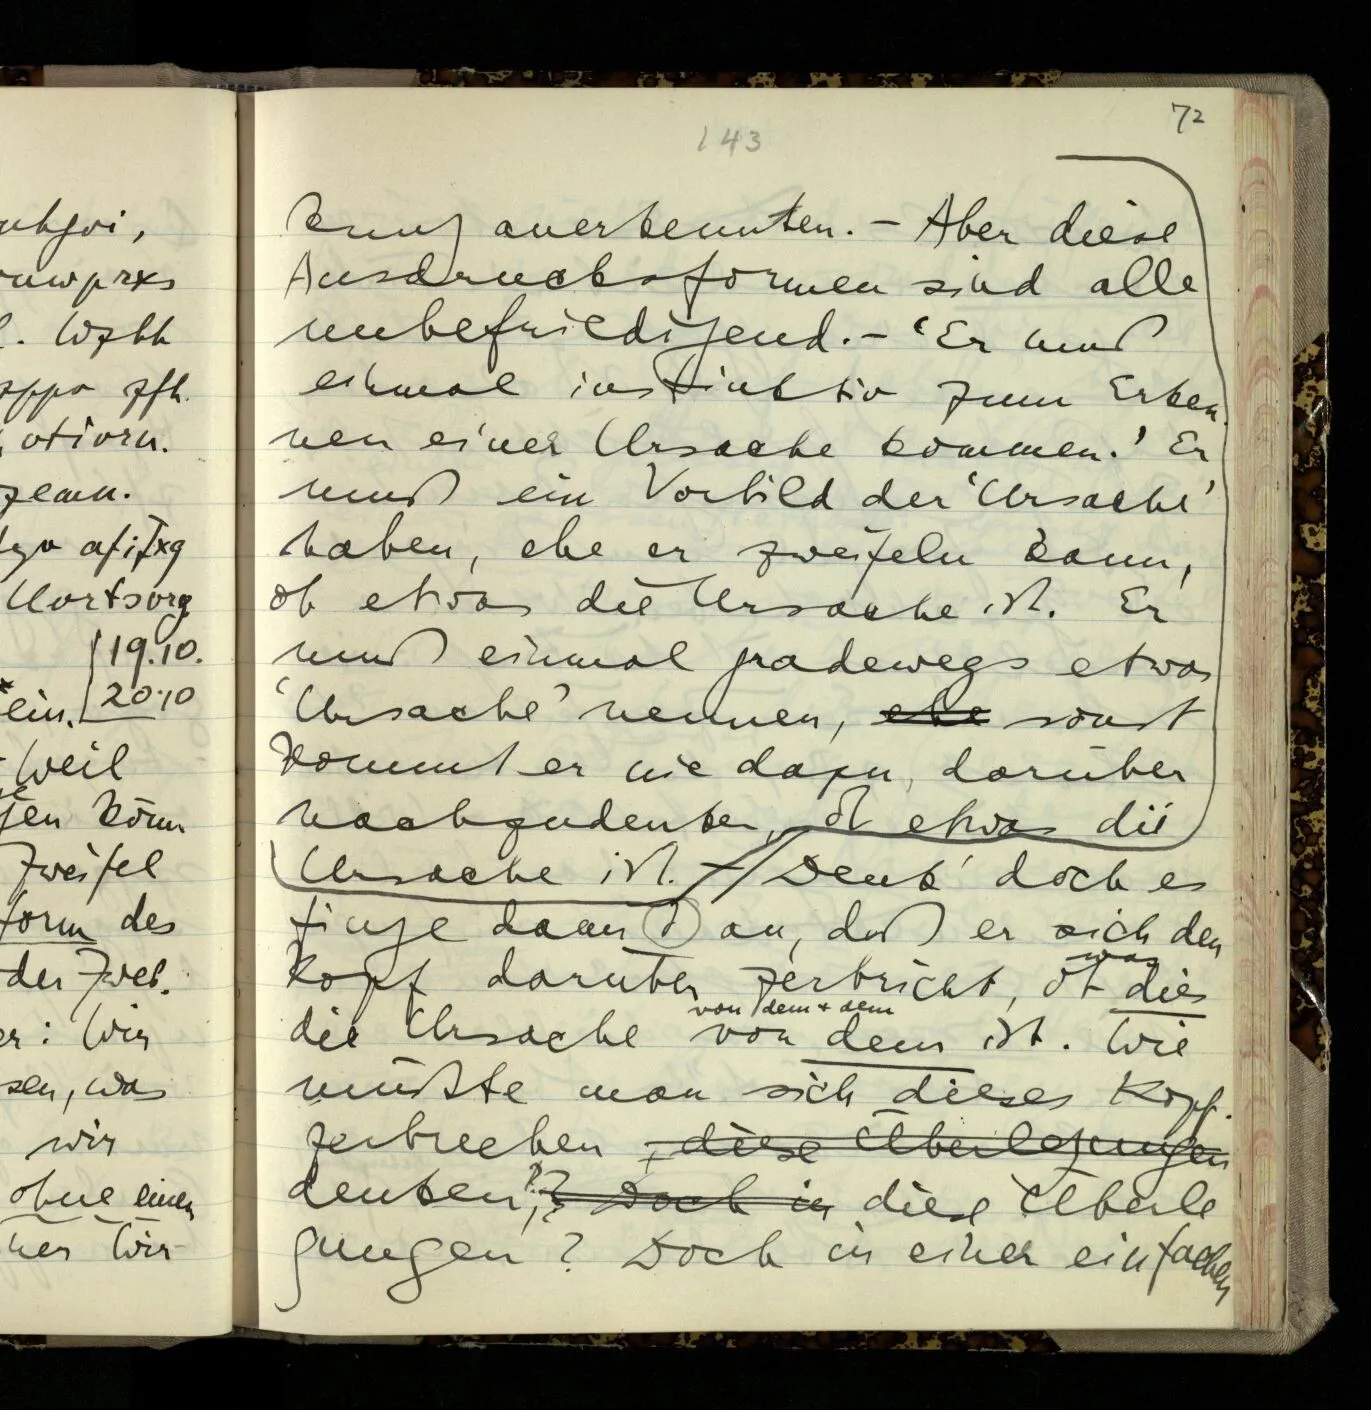 72
143
kung anerkennten. – Aber diese
Ausdrucksformen sind alle
unbefriedigend. – ‘Er muß
einmal instinktiv zum Erken
nen einer Ursache kommen.’ Er
muß ein Vorbild der ‘Ursache’
haben, ehe er zweifeln kann,
ob etwas die Ursache ist. Er
muß einmal gradewegs etwas
‘Ursache’ nennen, ehe sonst
kommt er nie dazu, darüber
nachzudenken, ob etwas die
Ursache ist. – / Denk' doch es
finge damit an, daß er sich den
was
Kopf darüber zerbricht, ob dies
von dem + dem
die Ursache von dem ist. Wie
müßte man sich dieses Kopf-
zerbrechen , diese Überlegungen
denken, ? Doch in diese Überle
gungen? Doch in einer einfachen
19.10.
20.10
ein.
Weil
gen könn
Zweifel
form des
der Zwei.
er: Wir
sen, was
wir
ohne einen
Wir